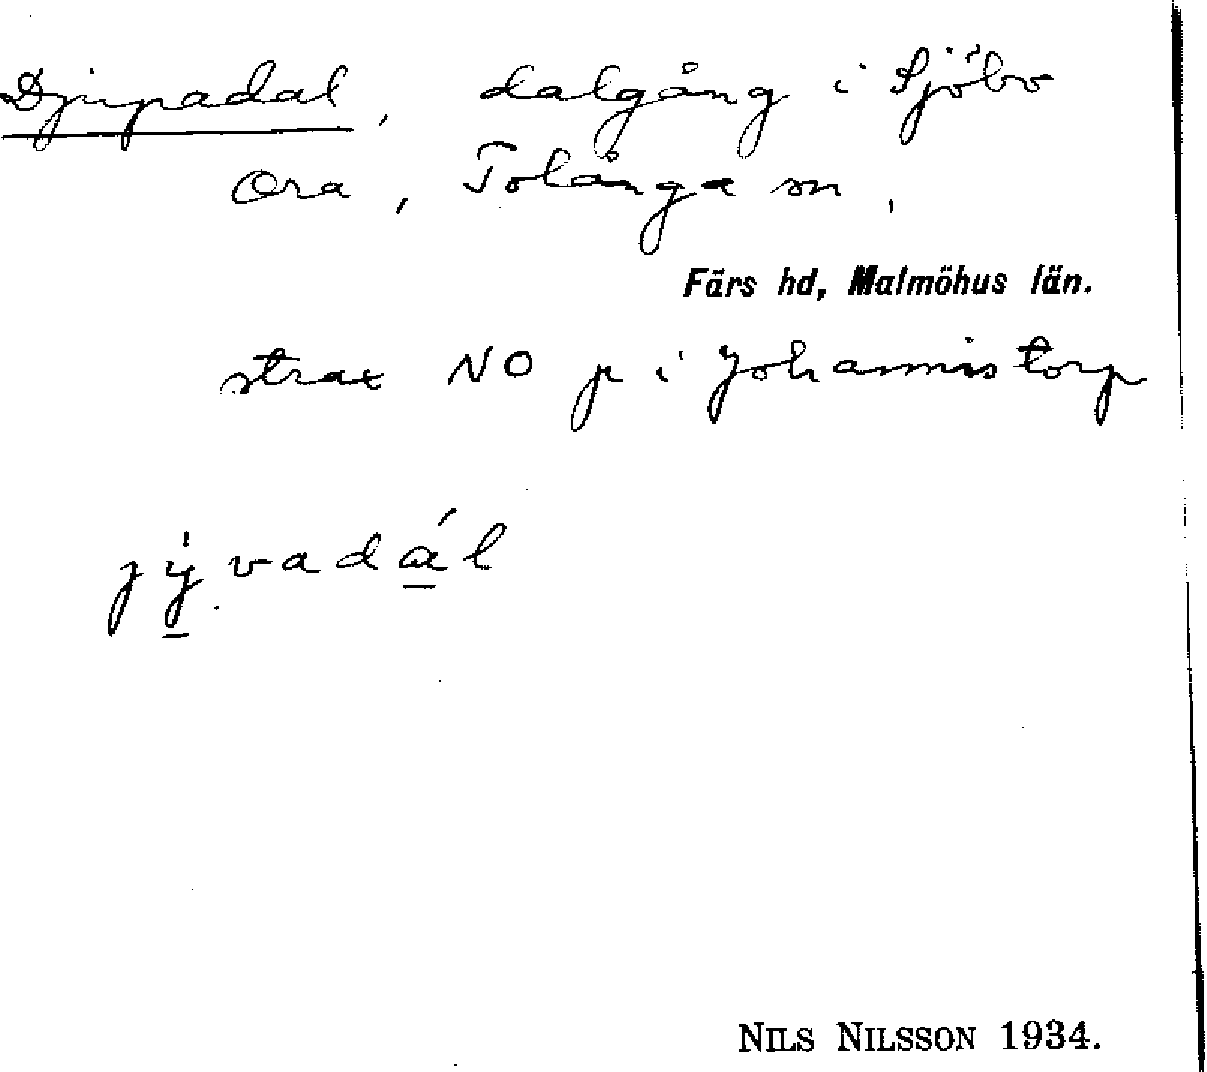 Djupadal, dalgång i Sjöbo
Ora, Tolånga sn,
Färs hd, Malmöhus län.
strax NO p i Johannistorp
jẏvadál
NILS NILSSON 1934.